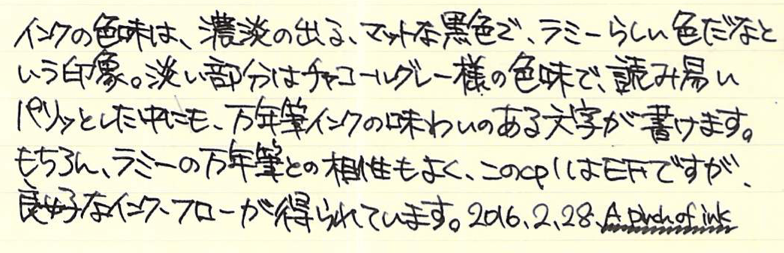 インクの色味は、濃淡の出る、マットな黒色で、ラミーらしい色だなと
いう印象。淡い部分はチャコールグレー様の色味で、読み易い
パリッとした中にも、万年筆インクの味わいのある文字が書けます。
もちろん、ラミーの万年筆との相性もよく、このcp1はEFですが、
良好なインクフローが得られています。2016.2.28. A pinch of ink